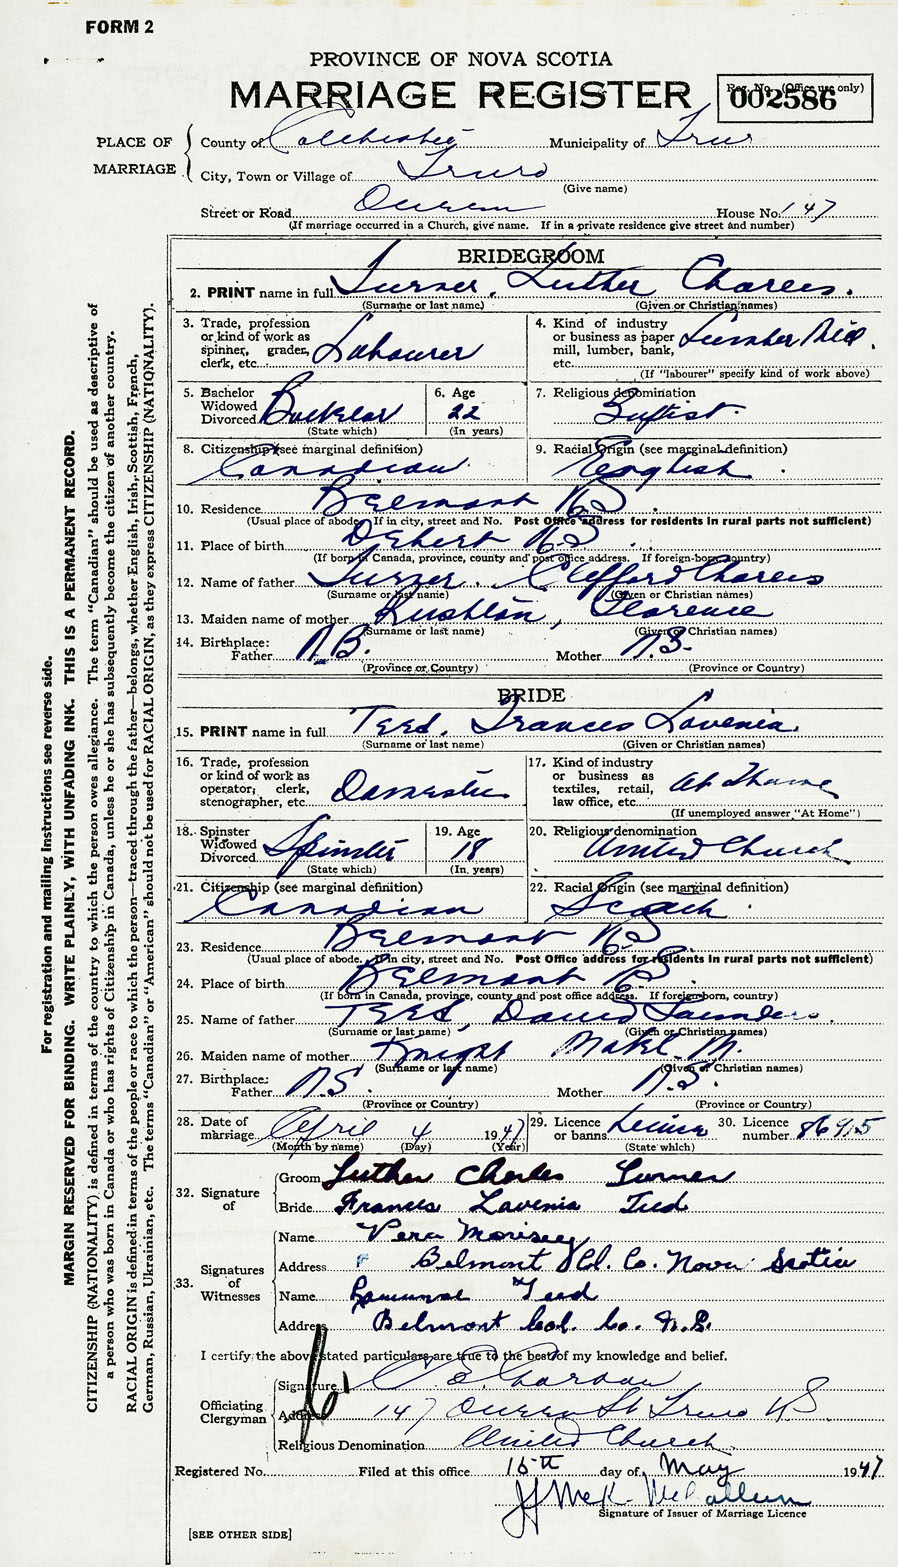 FORM 2
PROVINCE OF NOVA SCOTIA
MARRIAGE REGISTER
Reg. No. (Office use only)
002586
PLACE OF MARRIAGE
County of Colchester Municipality of Truro
City, Town or Village of Truro
(Give name)
Street or Road Queen House No. 147
(If marriage occurred in a Church, give name. If in a private residence give street and number)
BRIDEGROOM
2. PRINT name in full Turner, Luther Charles.
(Surname or last name) (Given or Christian names)
3. Trade, profession or kind of work as spinner, grader, clerk, etc. Labourer
4. Kind of industry or business as paper mill, lumber, bank, etc. Lumber Mill.
(If "labourer" specify kind of work above)
5. Bachelor Widowed Divorced Bachelor
(State which)
6. Age 22
(In years)
7. Religious denomination Baptist.
8. Citizenship (see marginal definition) Canadian.
9. Racial Origin (see marginal definition) English.
10. Residence Belmont N.S.
(Usual place of abode. If in city, street and No. Post Office address for residents in rural parts not sufficient)
11. Place of birth Debert N.S.
(If born in Canada, province, county and post office address. If foreign-born, country)
12. Name of father Turner. Clifford Charles
(Surname or last name) (Given or Christian names)
13. Maiden name of mother Rushton, Florence
(Surname or last name) (Given or Christian names)
14. Birthplace:
Father N.B. Mother N.S.
(Province or Country) (Province or Country)
BRIDE
15. PRINT name in full Teed, Frances Lavenia.
(Surname or last name) (Given or Christian names)
16. Trade, profession or kind of work as operator, clerk, stenographer, etc. Domestic
17. Kind of industry or business as textiles, retail, law office, etc. At Home
(If unemployed answer "At Home")
18. Spinster Widowed Divorced Spinster
(State which)
19. Age 18
(In years)
20. Religious denomination United Church
21. Citizenship (see marginal definition) Canadian
22. Racial Origin (see marginal definition) Scotch.
23. Residence Belmont N.S.
(Usual place of abode. If in city, street and No. Post Office address for residents in rural parts not sufficient)
24. Place of birth Belmont N.S.
(If born in Canada, province, county and post office address. If foreign-born, country)
25. Name of father Teed, David Saunders.
(Surname or last name) (Given or Christian names)
26. Maiden name of mother Knight Mabel M.
(Surname or last name) (Given or Christian names)
27. Birthplace:
Father N.S. Mother N.S.
(Province or Country) (Province or Country)
28. Date of marriage April 4 1947
(Month by name) (Day) (Year)
29. Licence or banns License
(State which)
30. Licence number 86915
32. Signature of
Groom Luther Charles Turner
Bride Frances Lavenia Teed
33. Signatures of Witnesses
Name Vera Morisey
Address Belmont Col. Co. Nova Scotia
Name Teed
Address Belmont Col. Co. N.S.
I certify the above stated particulars are true to the best of my knowledge and belief.
Officiating Clergyman
Signature C E
Address 147 Queen St Truro N S
Religious Denomination United Church.
Registered No. Filed at this office 16th day of May 1947
J McK McCallum
Signature of Issuer of Marriage Licence
[SEE OTHER SIDE]
For registration and mailing instructions see reverse side.
MARGIN RESERVED FOR BINDING. WRITE PLAINLY, WITH UNFADING INK. THIS IS A PERMANENT RECORD.
CITIZENSHIP (NATIONALITY) is defined in terms of the country to which the person owes allegiance. The term "Canadian" should be used as descriptive of
a person who was born in Canada or who has rights of Citizenship in Canada, unless he or she has subsequently become the citizen of another country.
RACIAL ORIGIN is defined in terms of the people or race to which the person—traced through the father—belongs, whether English, Irish, Scottish, French,
German, Russian, Ukrainian, etc. The terms "Canadian" or "American" should not be used for RACIAL ORIGIN, as they express CITIZENSHIP (NATIONALITY).